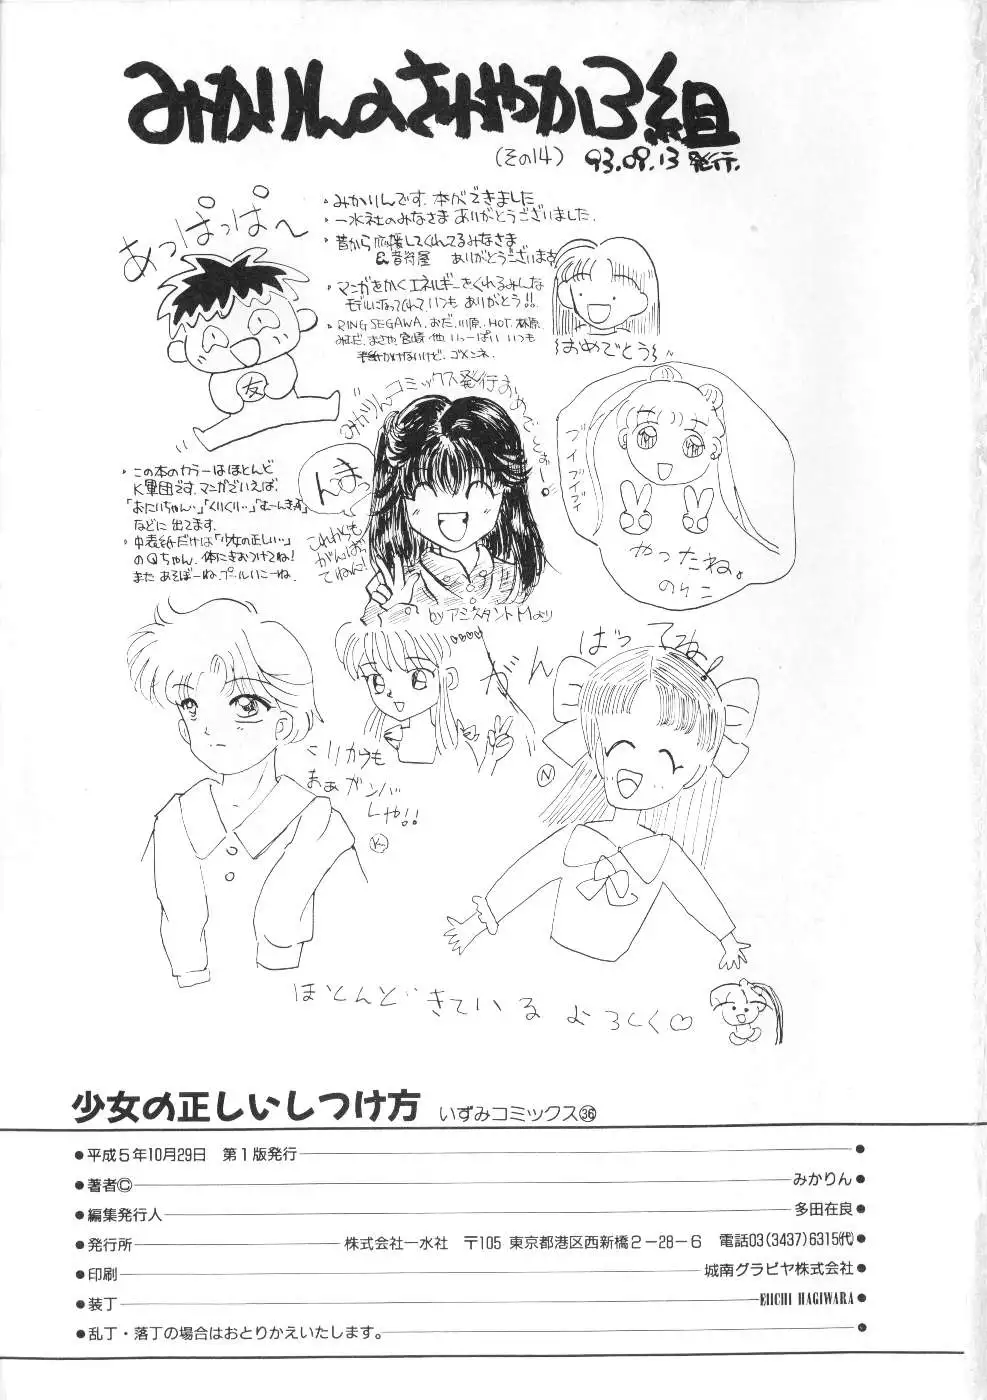 みかりんのさわやか3組
(その14) 93.09.13 発行.
あっぱっぱ〜
・みかりんです. 本ができました
・一水社のみなさま ありがとうございました.
・昔から応援してくれてるみなさま
&音符屋 ありがとうございます
・マンガをかくエネルギーをくれるみんな
モデルになってくれて、いつも ありがとう!!
・RING SEGAWA, おだ, 川原, HOT, 林原,
みはだ, まさや, 宮崎 他, いっぱい いつも
手紙かけないけど, ゴメンネ.
おめでとう
友
みかりんコミックス発行おめでとぉー!
まんっ
これからも
がんばっ
てねん!
by アシスタントMより
ブイブイブイ
やったね。
のりこ
・この本のカラーはほとんど
K軍団です. マンガでいえば,
「おにいちゃん…」「くりくり…」「むーんきっず」
などに 出てます.
・中表紙だけは「少女の正しい…」
のQちゃん. 体にきおつけてね!
また あそぼーね. プールいこーね.
がんばってね!
こりからも
まぁガンバ
しや!!
K
N
ほとんど…きている よろしく♡
少女の正しいしつけ方 いずみコミックス㊱
●平成5年10月29日 第1版発行●
●著者© みかりん●
●編集発行人 多田在良●
●発行所 株式会社一水社 〒105 東京都港区西新橋2−28−6 電話03(3437)6315㈹●
●印刷 城南グラビヤ株式会社●
●装丁 EIICHI HAGIWARA●
●乱丁・落丁の場合はおとりかえいたします。●